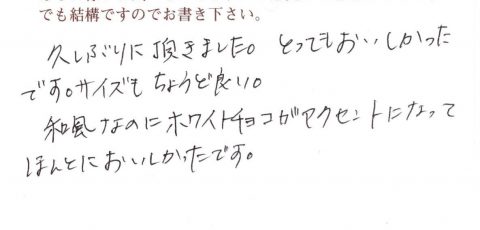 でも結構ですのでお書き下さい。
久しぶりに頂きました。とってもおいしかった
です。サイズもちょうど良い。
和風なのにホワイトチョコがアクセントになって
ほんとにおいしかったです。